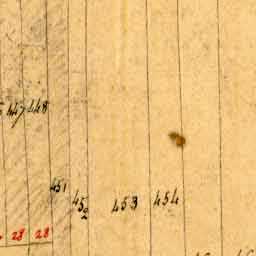 447 448
451
452
453 454
28 28